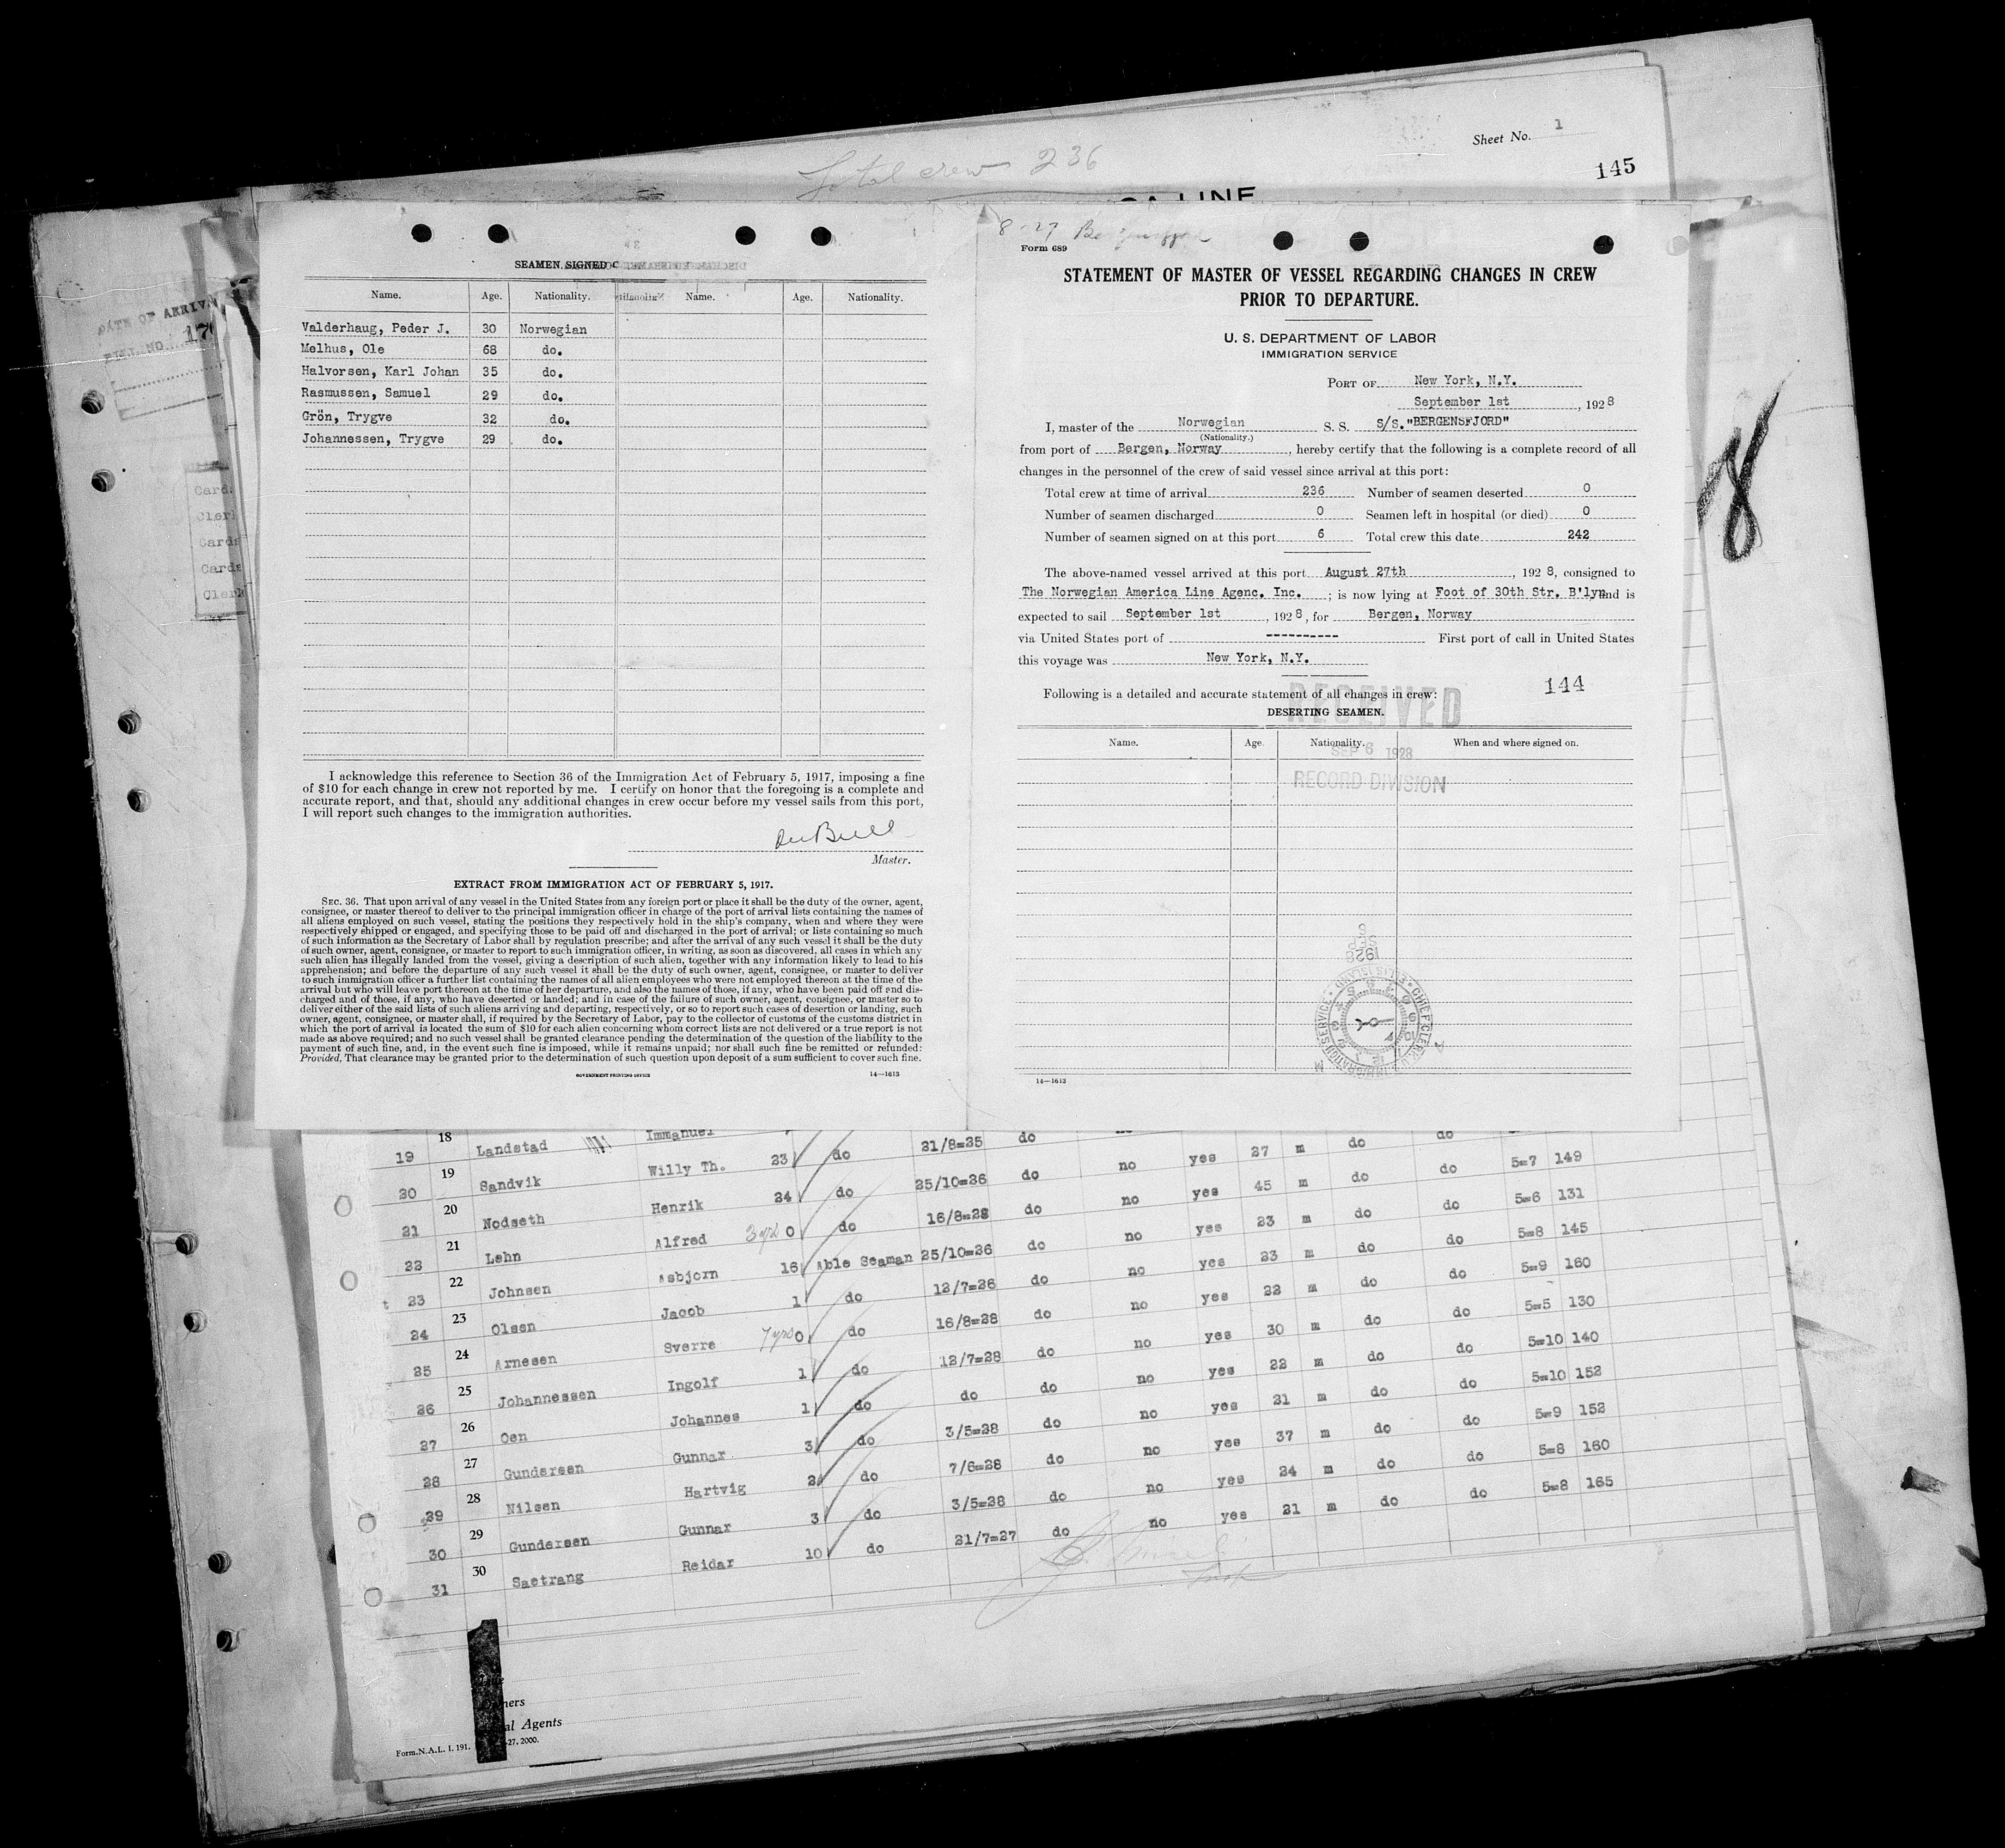 Sheet No. 1
145
Total crew 236
CA LINE
DATE OF ARRIV
FILE NO. 17
Card.
Cler
Cards
Cards
Clerk
SEAMEN SIGNED
Name. Age. Nationality. Name. Age. Nationality.
Valderhaug, Peder J. 30 Norwegian
Melhus, Ole 68 do.
Halvorsen, Karl Johan 35 do.
Rasmussen, Samuel 29 do.
Grön, Trygve 32 do.
Johannessen, Trygve 29 do.
I acknowledge this reference to Section 36 of the Immigration Act of February 5, 1917, imposing a fine
of $10 for each change in crew not reported by me. I certify on honor that the foregoing is a complete and
accurate report, and that, should any additional changes in crew occur before my vessel sails from this port,
I will report such changes to the immigration authorities.
Master.
EXTRACT FROM IMMIGRATION ACT OF FEBRUARY 5, 1917.
SEC. 36. That upon arrival of any vessel in the United States from any foreign port or place it shall be the duty of the owner, agent,
consignee, or master thereof to deliver to the principal immigration officer in charge of the port of arrival lists containing the names of
all aliens employed on such vessel, stating the positions they respectively hold in the ship's company, when and where they were
respectively shipped or engaged, and specifying those to be paid off and discharged in the port of arrival; or lists containing so much
of such information as the Secretary of Labor shall by regulation prescribe; and after the arrival of any such vessel it shall be the duty
of such owner, agent, consignee, or master to report to such immigration officer, in writing, as soon as discovered, all cases in which any
such alien has illegally landed from the vessel, giving a description of such alien, together with any information likely to lead to his
apprehension; and before the departure of any such vessel it shall be the duty of such owner, agent, consignee, or master to deliver
to such immigration officer a further list containing the names of all alien employees who were not employed thereon at the time of the
arrival but who will leave port thereon at the time of her departure, and also the names of those, if any, who have been paid off and dis-
charged and of those, if any, who have deserted or landed; and in case of the failure of such owner, agent, consignee, or master so to
deliver either of the said lists of such aliens arriving and departing, respectively, or so to report such cases of desertion or landing, such
owner, agent, consignee, or master shall, if required by the Secretary of Labor, pay to the collector of customs of the customs district in
which the port of arrival is located the sum of $10 for each alien concerning whom correct lists are not delivered or a true report is not
made as above required; and no such vessel shall be granted clearance pending the determination of the question of the liability to the
payment of such fine, and, in the event such fine is imposed, while it remains unpaid; nor shall such fine be remitted or refunded:
Provided, That clearance may be granted prior to the determination of such question upon deposit of a sum sufficient to cover such fine.
GOVERNMENT PRINTING OFFICE 14—1613
8-27
Form 689
STATEMENT OF MASTER OF VESSEL REGARDING CHANGES IN CREW
PRIOR TO DEPARTURE.
U. S. DEPARTMENT OF LABOR
IMMIGRATION SERVICE
PORT OF New York, N.Y.
September 1st, 1928
I, master of the Norwegian S. S. S/S."BERGENSFJORD"
(Nationality.)
from port of Bergen, Norway, hereby certify that the following is a complete record of all
changes in the personnel of the crew of said vessel since arrival at this port:
Total crew at time of arrival 236 Number of seamen deserted 0
Number of seamen discharged 0 Seamen left in hospital (or died) 0
Number of seamen signed on at this port 6 Total crew this date 242
The above-named vessel arrived at this port August 27th, 1928, consigned to
The Norwegian America Line Agenc. Inc. ; is now lying at Foot of 30th Str. B'lyn and is
expected to sail September 1st, 1928, for Bergen, Norway
via United States port of ---------- First port of call in United States
this voyage was New York, N.Y.
144
Following is a detailed and accurate statement of all changes in crew:
RECEIVED
DESERTING SEAMEN.
Name. Age. Nationality. When and where signed on.
SEP 6 1928
RECORD DIVISION
SEP 6
1928
CHIEF CLERK, U.S. IMMIGRATION SERVICE ELLIS ISLAND
14—1613
8
18 Immanuel
19 Landstad 21/8=25 do no do do
19 Willy Th. 23 do yes 27 m
20 Sandvik 25/10=26 do no do do 5=7 149
20 Henrik 24 do yes 45 m
21 Nodseth 16/8=28 do no do do 5=6 131
21 Alfred 3 yrs 0 do yes 23 m
22 Lehn 25/10=26 do no do do 5=8 145
22 Asbjorn 16 Able Seaman yes 23 m
23 Johnsen 12/7=26 do no do do 5=9 160
23 Jacob 1 do yes 22 m
24 Olsen 16/8=28 do no do do 5=5 130
24 Sverre 7 yrs 0 do yes 30 m
25 Arnesen 12/7=28 do no do do 5=10 140
25 Ingolf 1 do yes 22 m
26 Johannessen do do no do do 5=10 152
26 Johannes 1 do yes 21 m
27 Oen 3/5=28 do no do do 5=9 152
27 Gunnar 3 do yes 37 m
28 Gundersen 7/6=28 do no do do 5=8 160
28 Hartvig 2 do yes 24 m
29 Nilsen 3/5=28 do no do do 5=8 165
29 Gunnar 3 do yes 21 m
30 Gundersen 21/7=27 do
30 Reidar 10 do
31 Saetrang
ners
al Agents
Form.N.A.L. I. 191. -27. 2000.